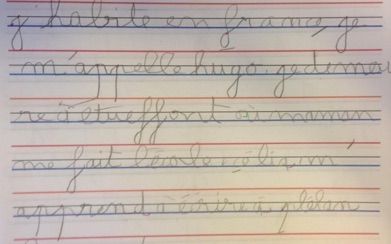 j'habite en france, je
m'appelle hugo. je demeu
re à étueffont où maman
me fait l'école. célia, m'
apprend à écrire à